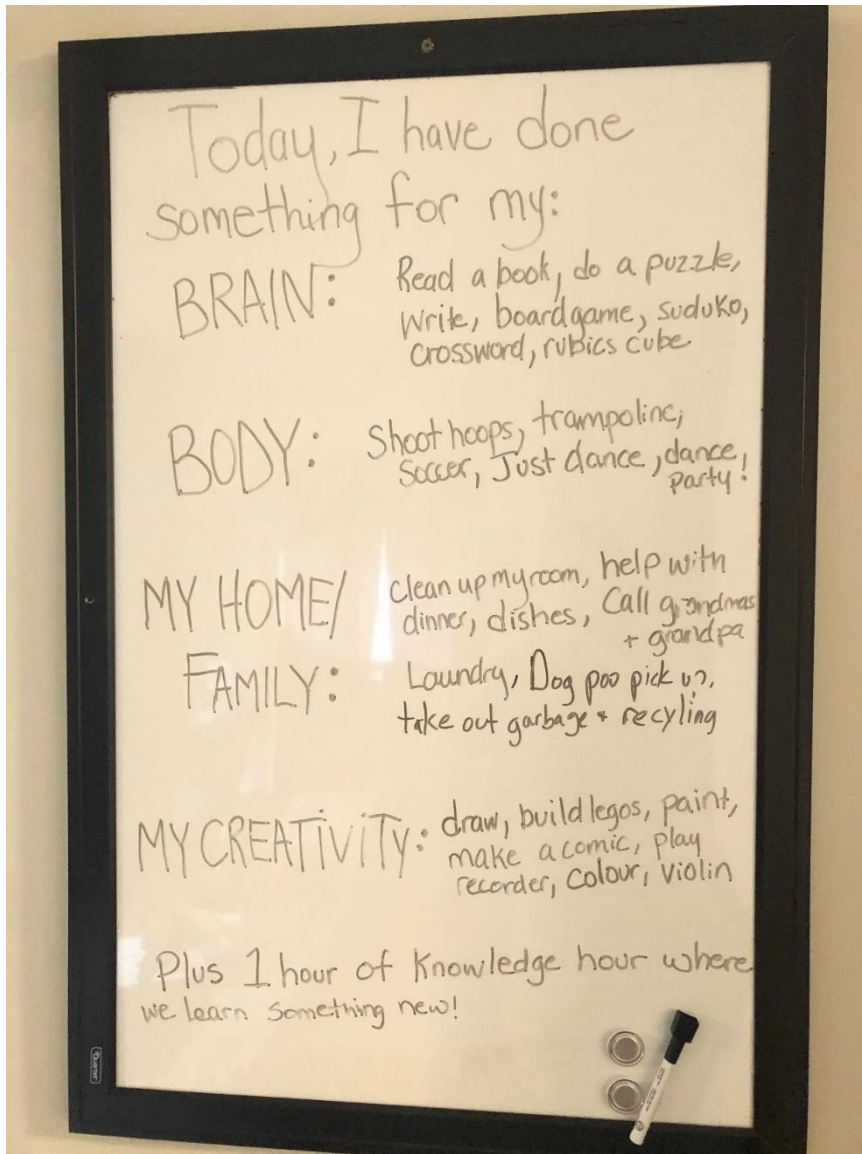 Today, I have done
something for my:
BRAIN: Read a book, do a puzzle,
write, boardgame, suduko,
crossword, rubics cube
BODY: Shoot hoops, trampoline,
Soccer, Just dance, dance
party!
MY HOME/ clean up my room, help with
dinner, dishes, Call grandmas
+ grandpa
FAMILY: Laundry, Dog poo pick up,
take out garbage + recyling
MY CREATIVITY: draw, build legos, paint,
make a comic, play
recorder, colour, violin
Plus 1 hour of Knowledge hour where
we learn something new!
Quartet